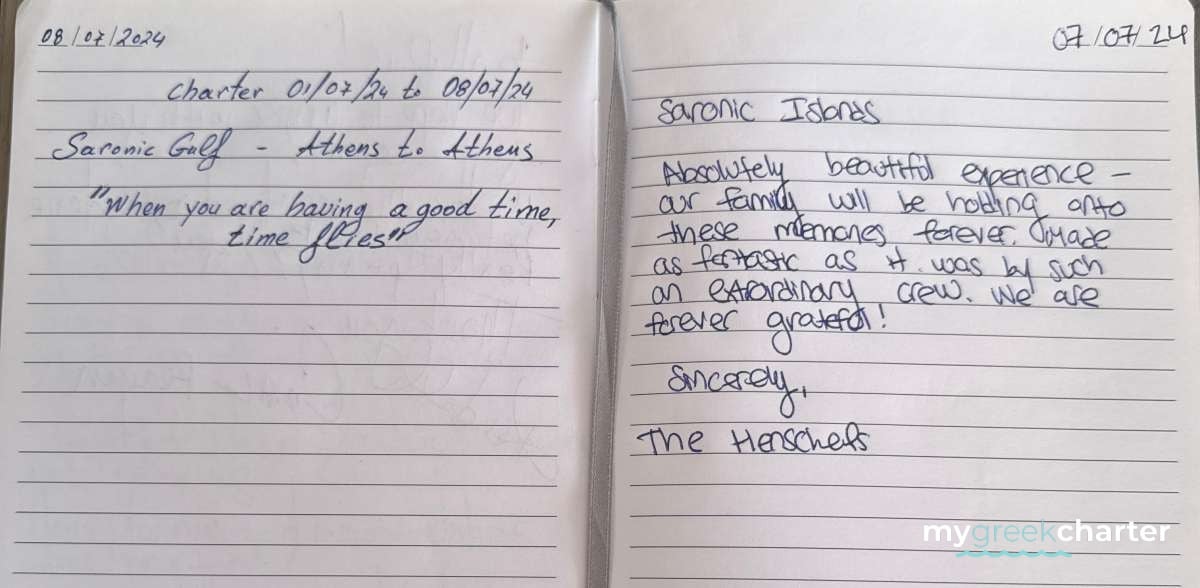 08/07/2024
Charter 01/07/24 to 08/07/24
Saronic Gulf - Athens to Athens
"When you are having a good time,
time flies"
07/07/24
Saronic Islands
Absolutely beautiful experience -
our family will be holding onto
these memories forever. Made
as fantastic as it was by such
an extraordinary crew. We are
forever grateful!
Sincerely,
The Henschels
mygreekcharter